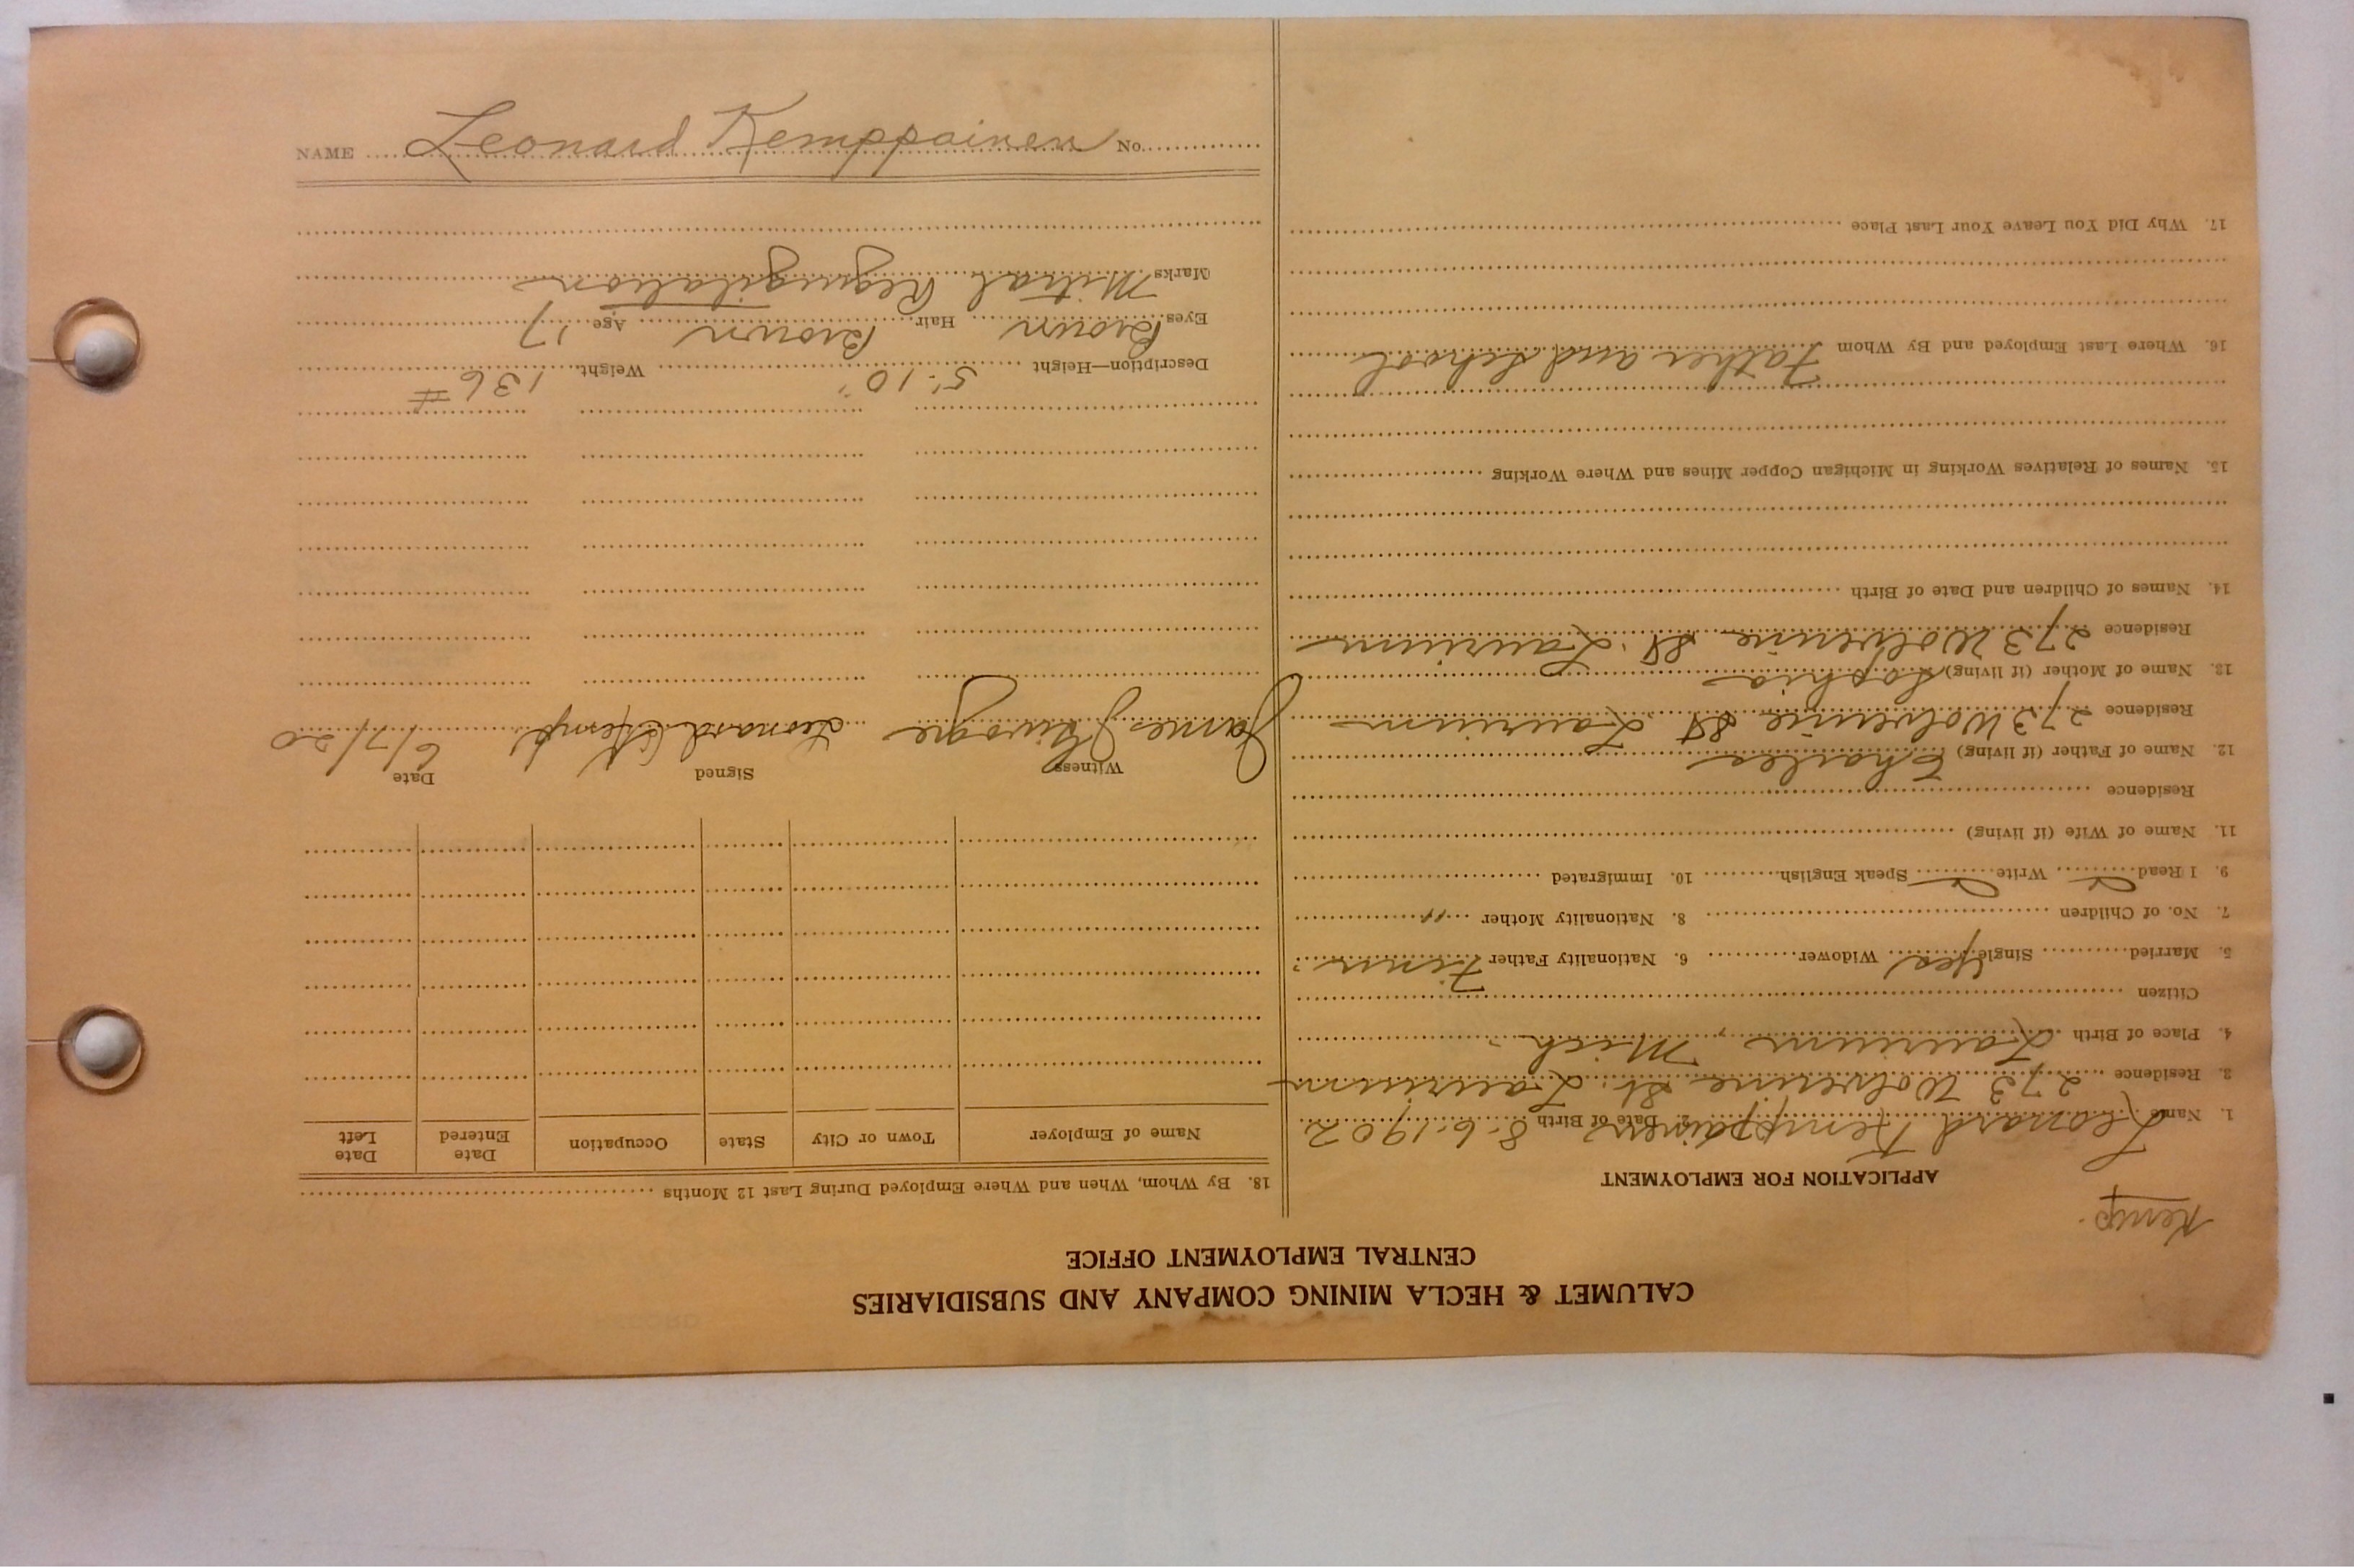 CALUMET & HECLA MINING COMPANY AND SUBSIDIARIES
CENTRAL EMPLOYMENT OFFICE
Kemp.
APPLICATION FOR EMPLOYMENT
1. Name Leonard Kemppainen 2. Date of Birth 8.6.1902
3. Residence 273 Wolverine St. Laurium
4. Place of Birth Laurium, Mich.
Citizen
5. Married Single Yes Widower 6. Nationality Father Finn
7. No. of Children 8. Nationality Mother "
9. I Read Write Speak English 10. Immigrated
11. Name of Wife (if living)
Residence
12. Name of Father (if living) Charles
Residence 273 Wolverine St Laurium
13. Name of Mother (if living) Sophia
Residence 273 Wolverine St. Laurium
14. Names of Children and Date of Birth
15. Names of Relatives Working in Michigan Copper Mines and Where Working
16. Where Last Employed and By Whom Father and School
17. Why Did You Leave Your Last Place
18. By Whom, When and Where Employed During Last 12 Months
Name of Employer Town or City State Occupation Date Entered Date Left
Witness Signed Date
James Leonard Kemp 6/7/20
Description—Height 5'.10" Weight 136 #
Eyes Brown Hair Brown Age 17
Marks Mitral Regugitation
NAME Leonard Kemppainen No.